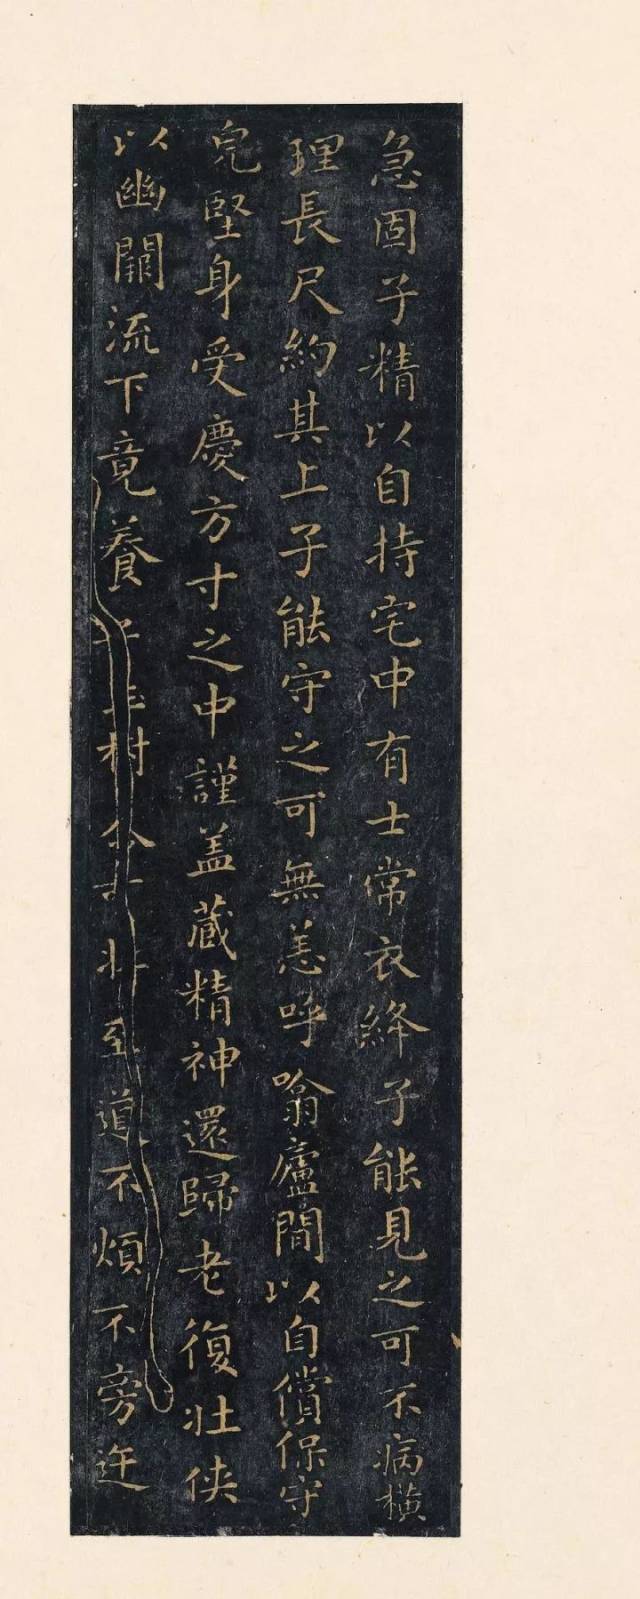 急固子精以自持宅中有士常衣絳子能見之可不病橫
理長尺約其上子能守之可無恙呼噏廬間以自償保守
完堅身受慶方寸之中謹盖藏精神還歸老復壯俠
以幽闕流下竟養子玉樹令 壯至道不煩不旁迕